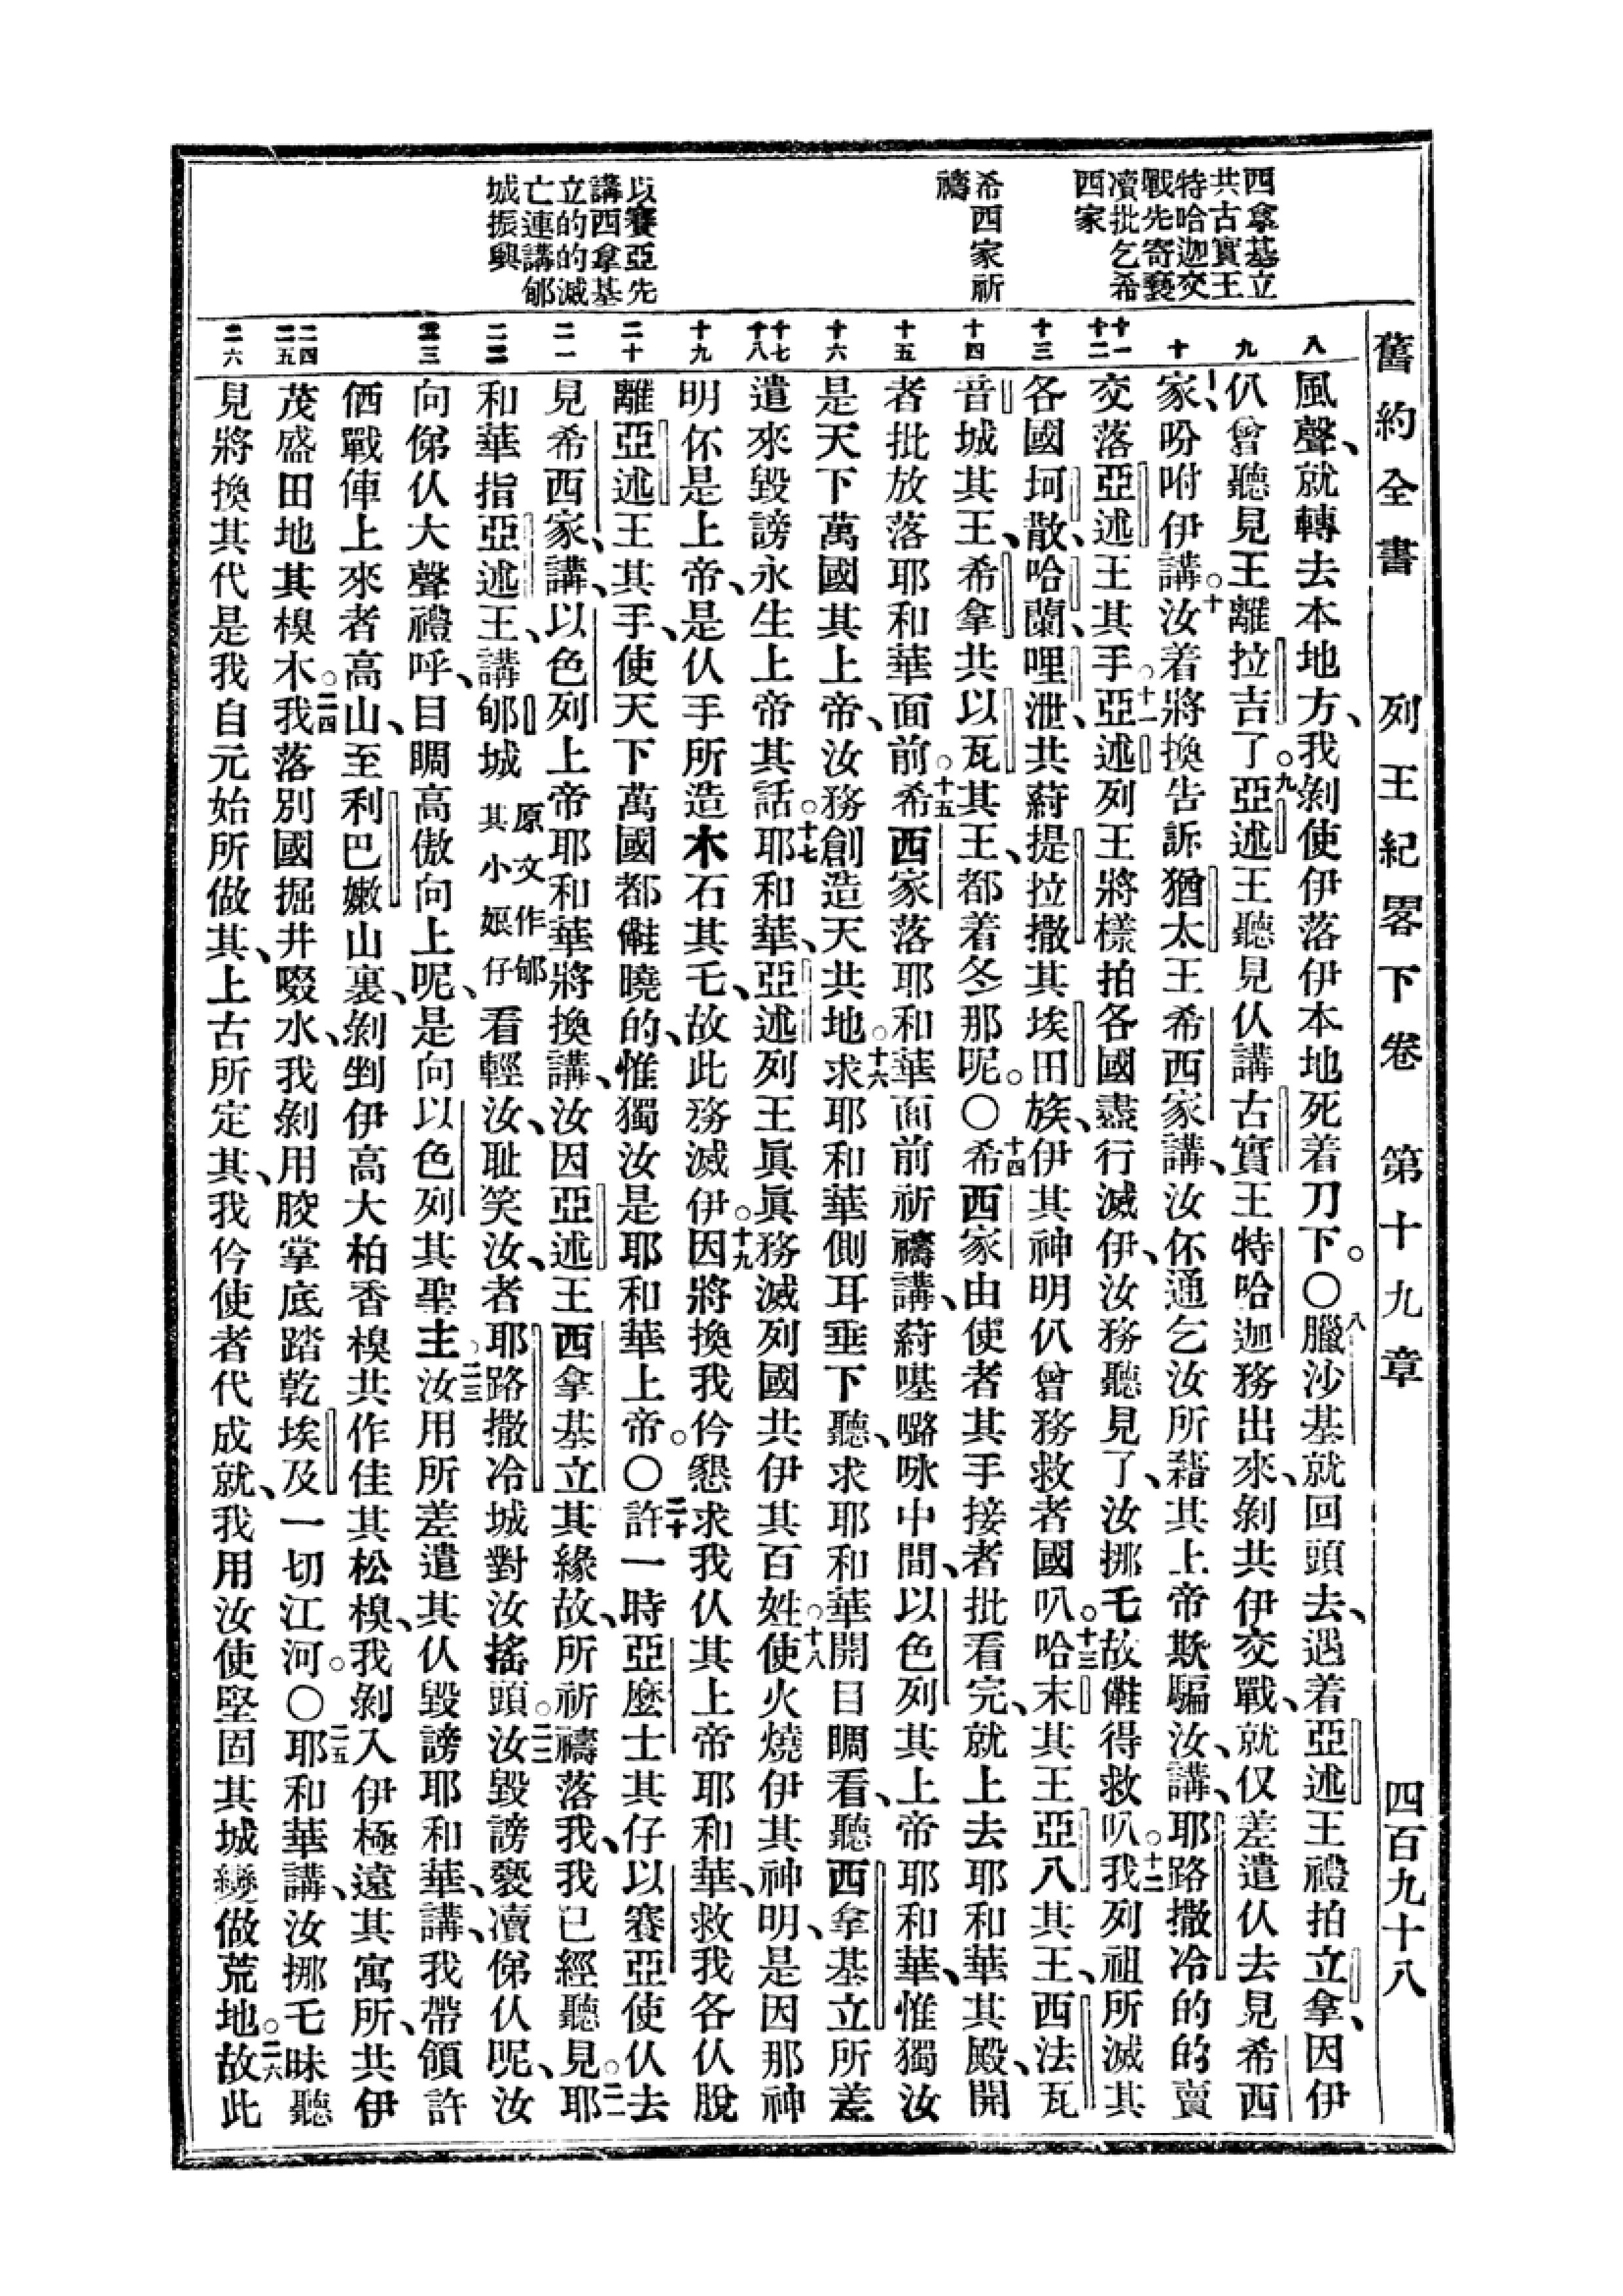 舊約全書 列王紀畧下卷 第十九章 四百九十八
西拿基立
共古實王
特哈迦交
戰先寄褻
瀆批乞希
西家
希西家祈
禱
以賽亞先
講西拿基
立的的滅
亡連講郇
城振興
八
九
十
十一
十二
十三
十四
十五
十六
十七
十八
十九
二十
二一
二二
二三
二四
二五
二六
風聲、就轉去本地方、我剝使伊落伊本地死着刀下。〇八臘沙基就回頭去、遇着亞述王禮拍立拿、因伊
仈曾聽見王離拉吉了。九亞述王聽見仈講古實王特哈迦務出來、剝共伊交戰、就仅差遣仈去見希西
家、吩咐伊講。十汝着將換告訴猶太王希西家講、汝伓通乞汝所藉其上帝欺騙汝、講、耶路撒冷的的賣
交落亞述王其手。十一亞述列王將樣拍各國盡行滅伊、汝務聽見了、汝挪乇故僆得救叭。十二我列祖所滅其
各國坷散、哈蘭、哩泄、共蒶提拉撒其埃田族、伊其神明仈曾務救者國叭。十三哈末其王亞八其王、西法瓦
音城其王、希拿共以瓦其王、都着冬那呢。〇十四希西家由使者其手接者批看完、就上去耶和華其殿、開
者批放落耶和華面前。十五希西家落耶和華面前祈禱講、蒶𡀔嚕咏中間、以色列其上帝耶和華、惟獨汝
是天下萬國其上帝、汝務創造天共地。十六求耶和華側耳垂下聽、求耶和華開目睭看、聽西拿基立所差
遣來毀謗永生上帝其話。十七耶和華、亞述列王眞眞務滅列國共伊其百姓。十八使火燒伊其神明、是因那神
明伓是上帝、是仈手所造木石其乇、故此務滅伊。十九因將換我仱懇求我仈其上帝耶和華、救我各仈脫
離亞述王其手、使天下萬國都僆曉的、惟獨汝是耶和華上帝。〇二十許一時亞麼士其仔以賽亞使仈去
見希西家、講、以色列上帝耶和華將換講、汝因亞述王西拿基立其緣故、所祈禱落我、我已經聽見。二一耶
和華指亞述王、講郇城原文作郇其小娘仔看輕汝、耻笑汝、者耶路撒冷城對汝搖頭。二二汝毀謗褻瀆俤仈呢、汝
向俤仈大聲禮呼、目睭高傲向上呢、是向以色列其聖主。二三汝用所差遣其仈毀謗耶和華、講、我帶領許
価戰俥上來者高山、至利巴嫩山裏、剝剉伊高大柏香槻共作佳其松槻、我剝入伊極遠其寓所、共伊
茂盛田地其槻木。二四我落別國掘井啜水、我剝用骹掌底踏乾埃及一切江河。〇二五耶和華講、汝挪乇昧聽
見將換其代是我自元始所做其、上古所定其、我仱使者代成就、我用汝使堅固其城變做荒地。二六故此